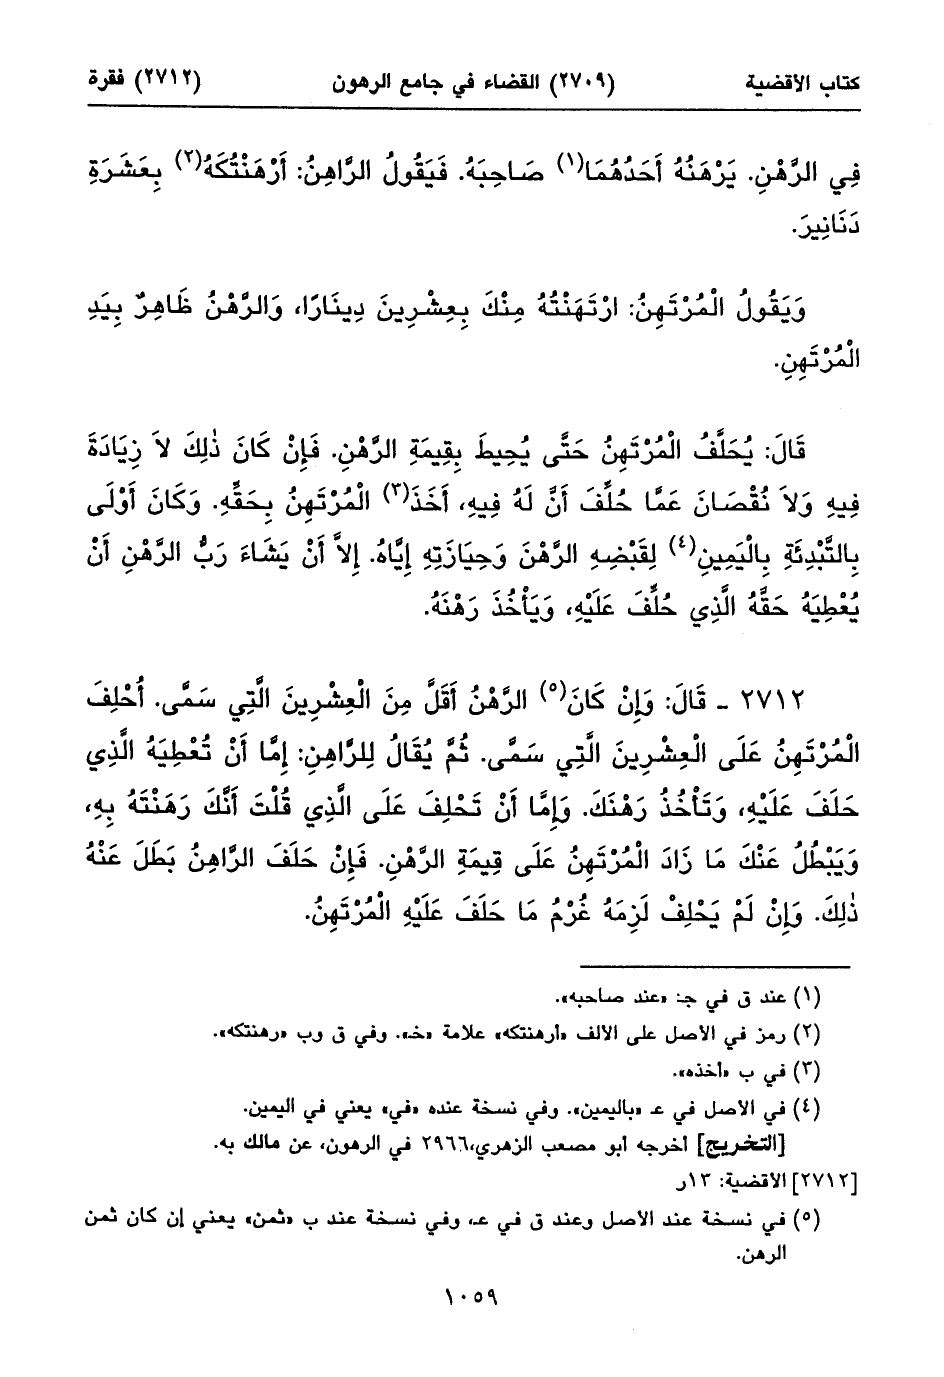 كتاب الأقضية (٢٧٠٩) القضاء في جامع الرهون (٢٧١٢) فقرة
فِي الرَّهْنِ. يَرْهَنُهُ أَحَدُهُمَا(١) صَاحِبَهُ. فَيَقُولُ الرَّاهِنُ: أَرْهَنْتُكَهُ(٢) بِعَشَرَةِ
دَنَانِيرَ.
وَيَقُولُ الْمُرْتَهِنُ: ارْتَهَنْتُهُ مِنْكَ بِعِشْرِينَ دِينَارًا، وَالرَّهْنُ ظَاهِرٌ بِيَدِ
الْمُرْتَهِنِ.
قَالَ: يُحَلَّفُ الْمُرْتَهِنُ حَتَّى يُحِيطَ بِقِيمَةِ الرَّهْنِ. فَإِنْ كَانَ ذٰلِكَ لاَ زِيَادَةَ
فِيهِ وَلاَ نُقْصَانَ عَمَّا حُلِّفَ أَنَّ لَهُ فِيهِ، أَخَذَ(٣) الْمُرْتَهِنُ بِحَقِّهِ. وَكَانَ أَوْلَى
بِالتَّبْدِئَةِ بِالْيَمِينِ(٤) لِقَبْضِهِ الرَّهْنَ وَحِيَازَتِهِ إِيَّاهُ. إِلاَّ أَنْ يَشَاءَ رَبُّ الرَّهْنِ أَنْ
يُعْطِيَهُ حَقَّهُ الَّذِي حُلِّفَ عَلَيْهِ، وَيَأْخُذَ رَهْنَهُ.
٢٧١٢ ـ قَالَ: وَإِنْ كَانَ(٥) الرَّهْنُ أَقَلَّ مِنَ الْعِشْرِينَ الَّتِي سَمَّى. أُحْلِفَ
الْمُرْتَهِنُ عَلَى الْعِشْرِينَ الَّتِي سَمَّى. ثُمَّ يُقَالُ لِلرَّاهِنِ: إِمَّا أَنْ تُعْطِيَهُ الَّذِي
حَلَفَ عَلَيْهِ، وَتَأْخُذُ رَهْنَكَ. وَإِمَّا أَنْ تَحْلِفَ عَلَى الَّذِي قُلْتَ أَنَّكَ رَهَنْتَهُ بِهِ،
وَيَبْطُلُ عَنْكَ مَا زَادَ الْمُرْتَهِنُ عَلَى قِيمَةِ الرَّهْنِ. فَإِنْ حَلَفَ الرَّاهِنُ بَطَلَ عَنْهُ
ذٰلِكَ. وَإِنْ لَمْ يَحْلِفْ لَزِمَهُ غُرْمُ مَا حَلَفَ عَلَيْهِ الْمُرْتَهِنُ.
(١) عند ق في جـ: «عند صاحبه».
(٢) رمز في الأصل على الألف «أرهنتكه» علامة «خـ». وفي ق وب «رهنتكه».
(٣) في ب «أخذه».
(٤) في الأصل في عـ «باليمين». وفي نسخة عنده «في» يعني في اليمين.
[التخريج] أخرجه أبو مصعب الزهري، ٢٩٦٦ في الرهون، عن مالك به.
[٢٧١٢] الأقضية: ١٣ر
(٥) في نسخة عند الأصل وعند ق في عـ، وفي نسخة عند ب «ثمن» يعني إن كان ثمن
الرهن.
١٠٥٩